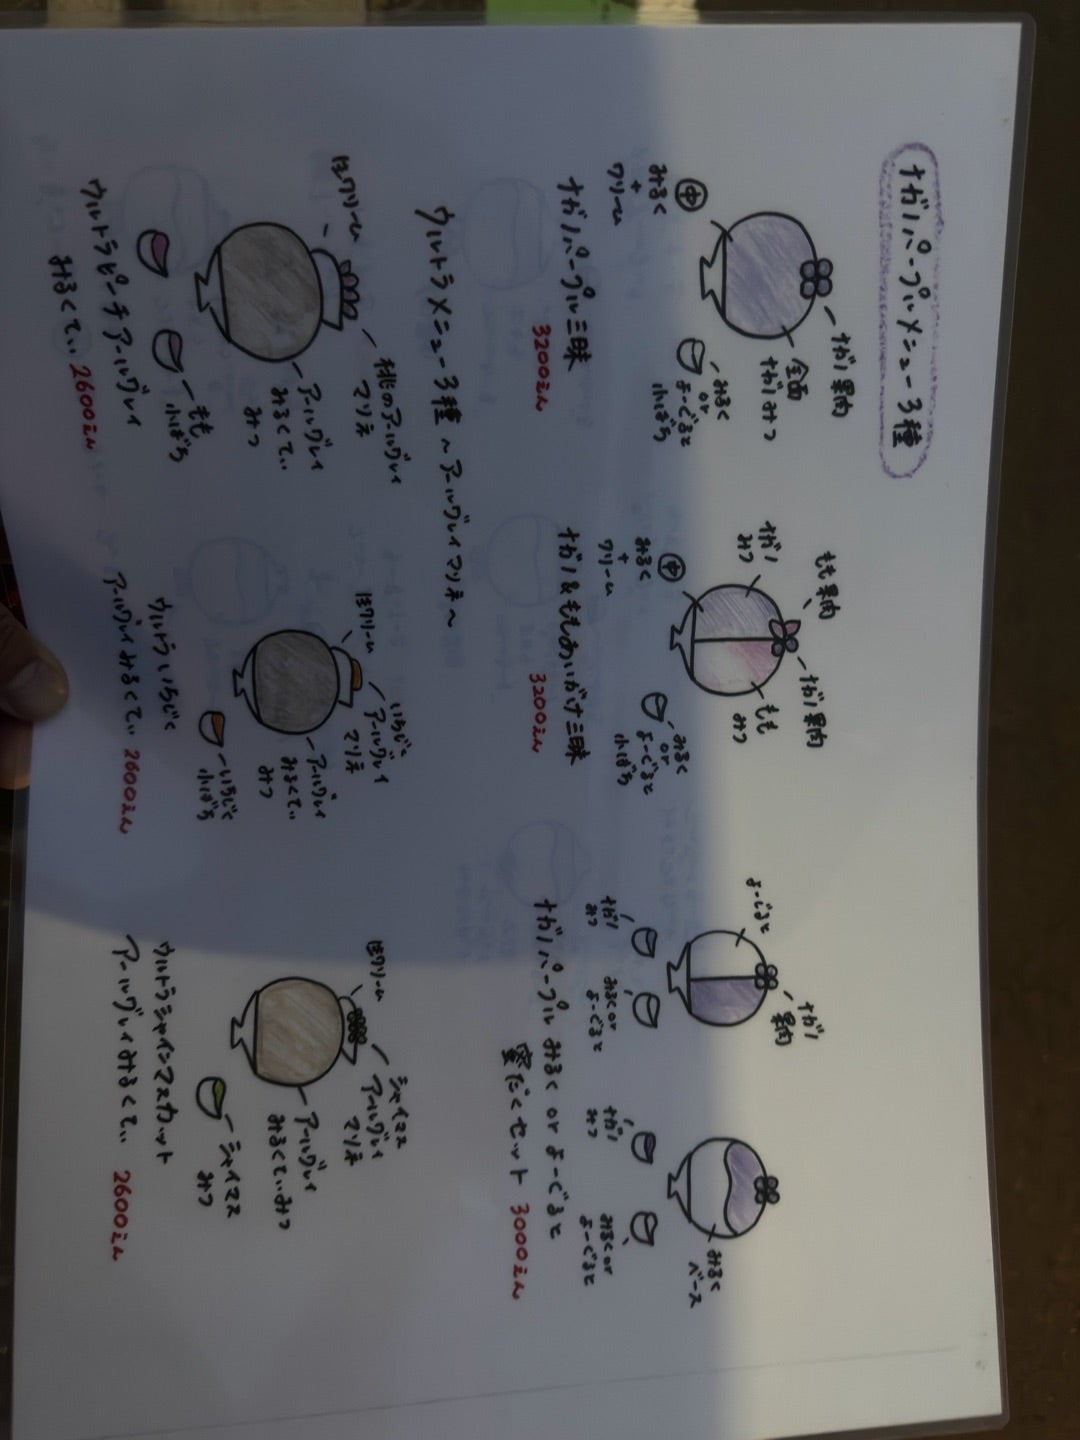 ナガノパープルメニュー3種
ナガノ果肉
全面
ナガノみつ
中
みるく
+
クリーム
みるく
or
よーぐると
小ばち
ナガノパープル三昧
3200えん
もも果肉
ナガノ果肉
ナガノ
みつ
もも
みつ
中
みるく
+
クリーム
みるく
or
よーぐると
小ばち
ナガノ&ももあいがけ三昧
3200えん
よーぐると
ナガノ
果肉
ナガノ
みつ
みるくor
よーぐると
みるく
ベース
ナガノ
みつ
みるくor
よーぐると
ナガノパープル みるく or よーぐると
蜜だくセット 3000えん
ウルトラメニュー3種 ～アールグレイマリネ～
桃のアールグレイ
マリネ
ほクリーム
アールグレイ
みるくてぃ
みつ
もも
小ばち
ウルトラピーチアールグレイ
みるくてぃ 2600えん
いちじく
アールグレイ
マリネ
ほクリーム
アールグレイ
みるくてぃ
みつ
いちじく
小ばち
ウルトラいちじく
アールグレイみるくてぃ 2600えん
シャイマス
アールグレイ
マリネ
ほクリーム
アールグレイ
みるくてぃみつ
シャイマス
みつ
ウルトラシャインマスカット
アールグレイみるくてぃ 2600えん